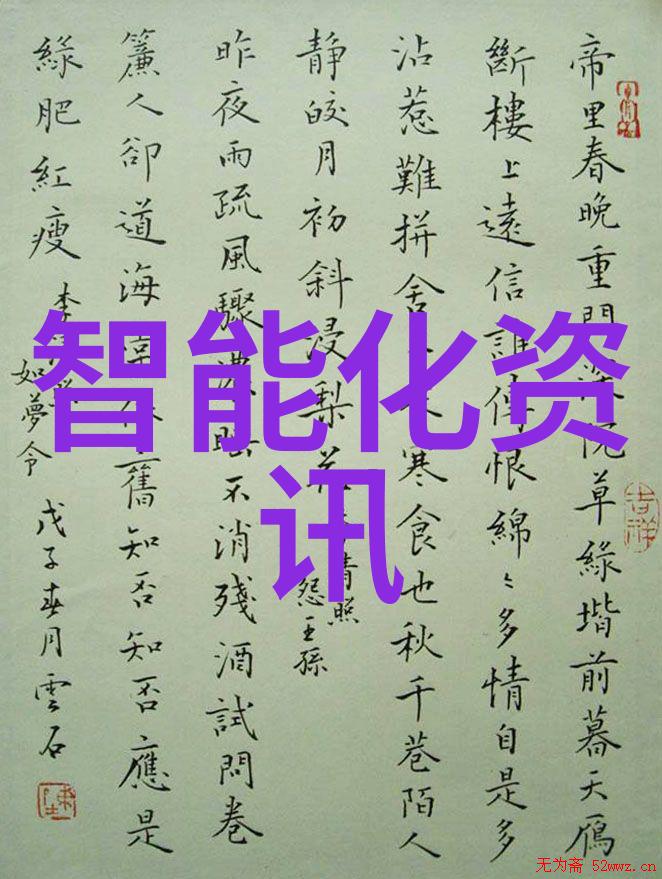 帝里春晚重門深院草綠堦前暮天鴈
斷樓上遠信誰傳恨綿〻多情自是多
沾惹難拼舍寒食也秋千巷陌人
靜皎月初斜浸梨花
清照
怨王孫
昨夜雨疏風驟濃睡不消殘酒試問卷
簾人卻道海棠依舊知否知否應是
綠肥紅瘦
李
如夢令
戊子春月雲石
吉祥
智能化资
讯
无为斋 52wwz.cn